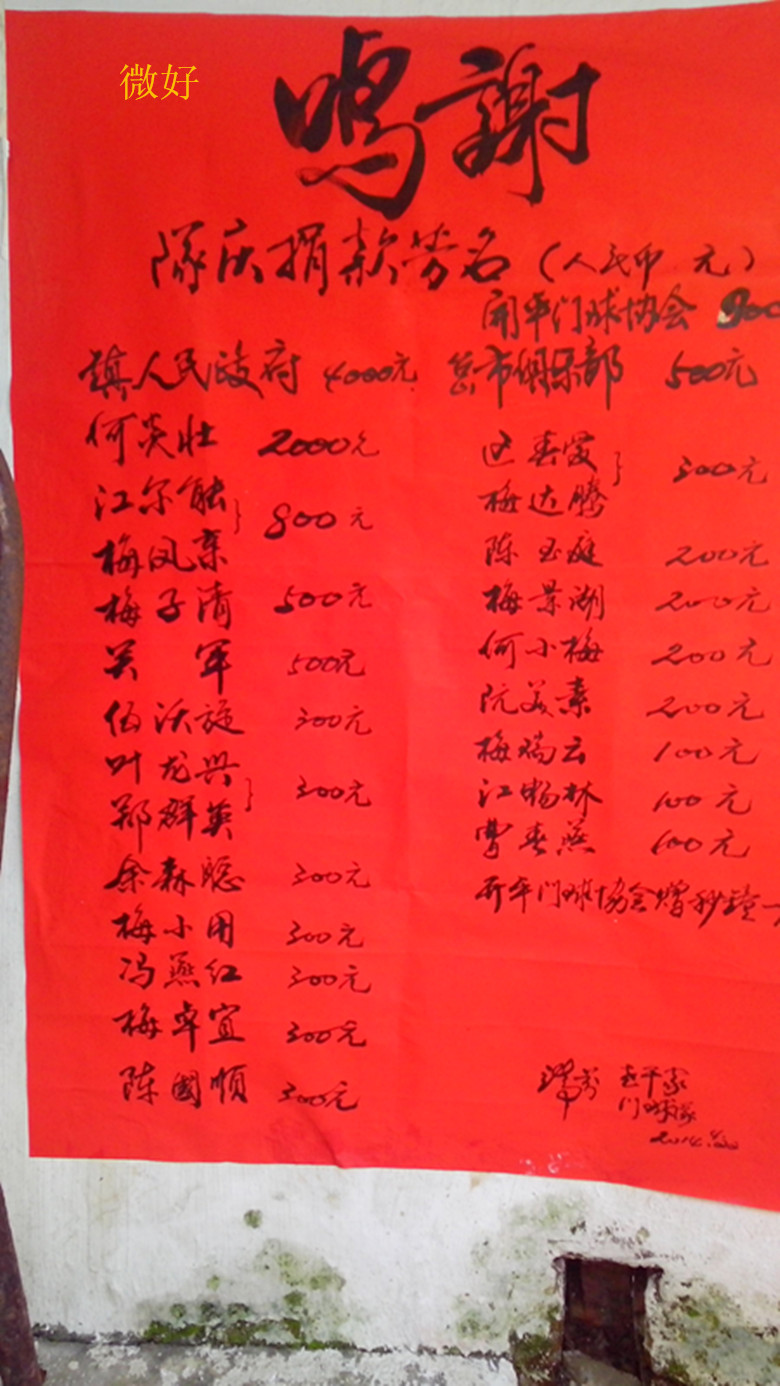 微好
鸣謝
隊庆捐款芳名(人民币 元)
开平门球协会
镇人民政府 4000元
何炎壮 2000元
江尔能
梅凤亲
800元
梅子清 500元
关军 500元
伍沃旋 300元
叶龙兴
郑群英
300元
余森聪 300元
梅小用 300元
冯燕红 300元
梅卓宜 300元
陈國順 300元
市俱乐部 500元
梅达腾
300元
陈玉庭 200元
梅景湖 200元
何小梅 200元
阮美素 200元
梅瑞云 100元
江畅林 100元
曹春燕 100元
开平门球协会赠秒鐘一
门球队
2014.